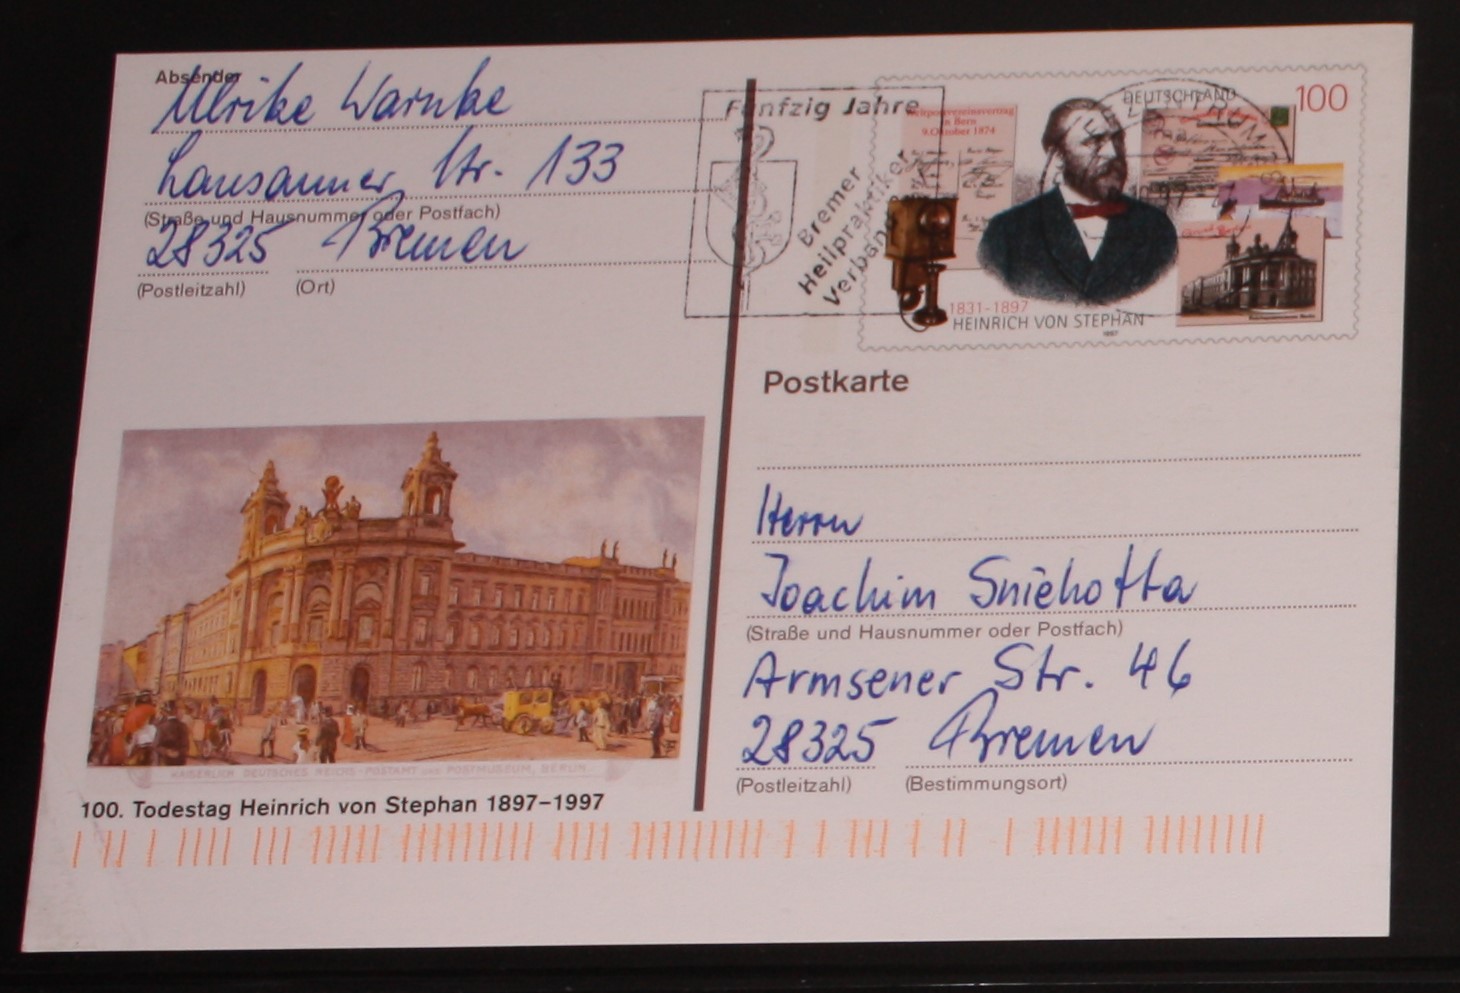 Absender
Ulrike Warnke
Lausanner Str. 133
(Straße und Hausnummer oder Postfach)
28325 Bremen
(Postleitzahl) (Ort)
Fünfzig Jahre
Bremer
Heilpraktiker
Verband
Weltpostvereinsvertrag
in Bern
9. Oktober 1874
DEUTSCHLAND
100
1831-1897
HEINRICH VON STEPHAN
1997
Postkarte
Herrn
Joachim Sniehotta
(Straße und Hausnummer oder Postfach)
Armsener Str. 46
28325 Bremen
(Postleitzahl) (Bestimmungsort)
KAISERLICH DEUTSCHES REICHS-POSTAMT UND POSTMUSEUM, BERLIN.
100. Todestag Heinrich von Stephan 1897–1997